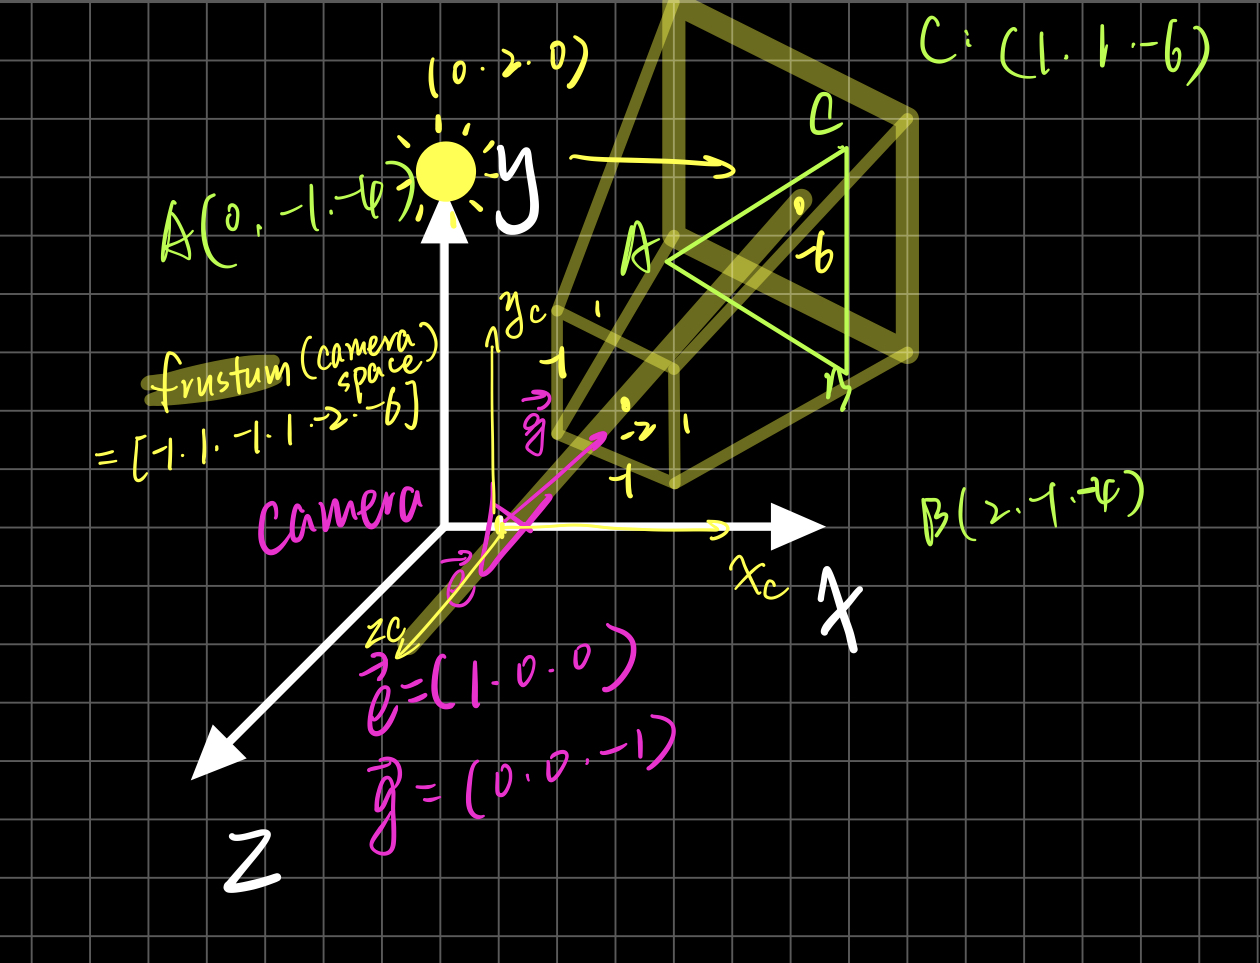 (0. 2. 0)
C: (1. 1. -6)
y
C
A(0. -1. -4)
A
0
-6
yc
1
frustum (camera
space)
= [-1. 1. -1. 1. -2. -6]
-1
g
-2
1
-1
B
Camera
B(2. -1. -4)
e
xc
X
zc
e = (1. 0. 0)
g = (0. 0. -1)
Z